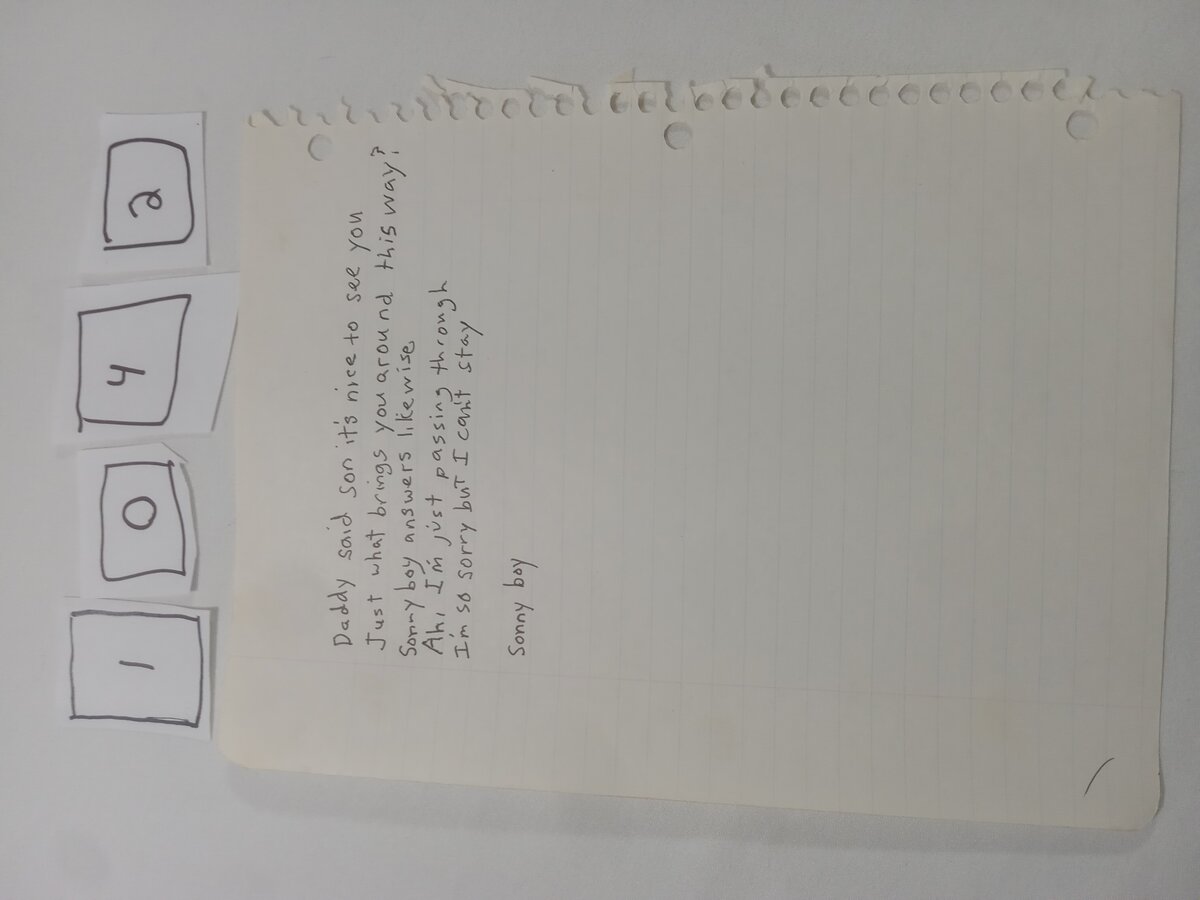 1 0 4 2
Daddy said son it's nice to see you
Just what brings you around this way?
Sonny boy answers likewise
Ah, I'm just passing through
I'm so sorry but I can't stay
Sonny boy